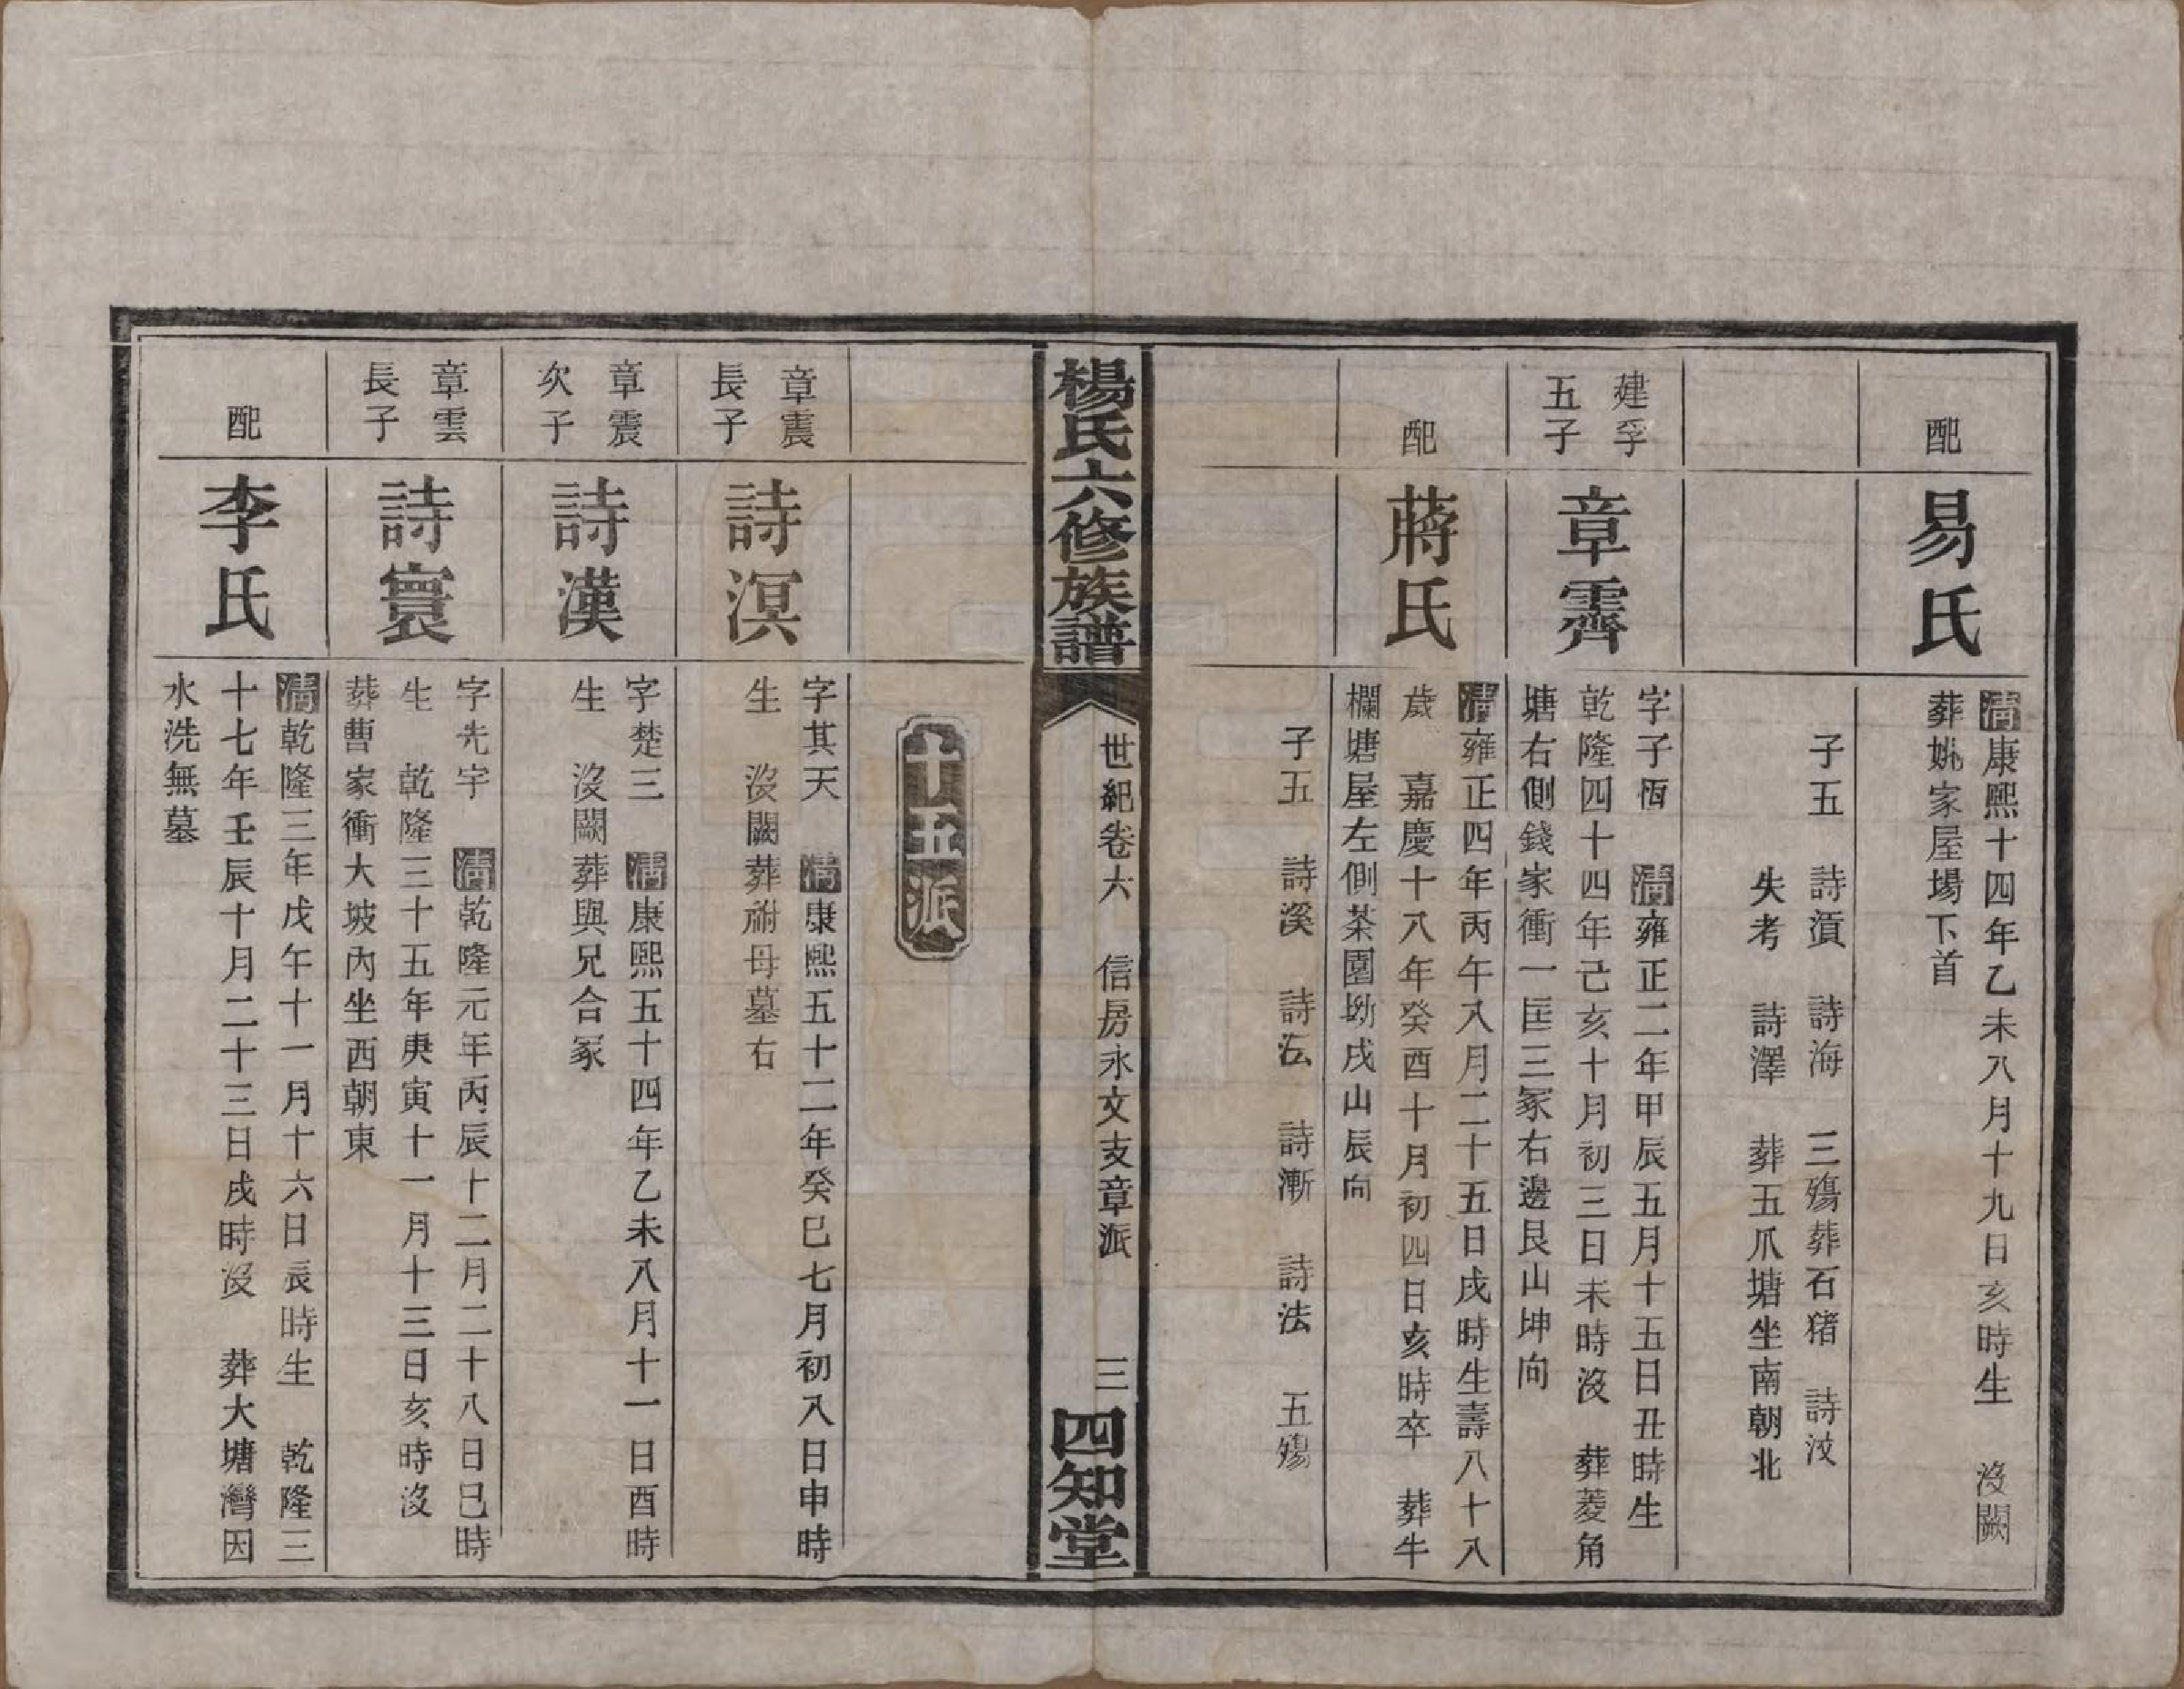 配
易氏
清康熙十四年乙未八月十九日亥時生　沒闕
葬姚家屋場下首
子五　詩湏　詩海　三殤葬石猪　詩汶
失考　詩澤　葬五爪塘坐南朝北
建孚
五子
章霽
字子恆　清雍正二年甲辰五月十五日丑時生
乾隆四十四年己亥十月初三日未時沒　葬菱角
塘右側錢家衝一匡三冢右邊艮山坤向
配
蔣氏
清雍正四年丙午八月二十五日戌時生壽八十八
歲　嘉慶十八年癸酉十月初四日亥時卒　葬牛
欄塘屋左側茶園坳戌山辰向
子五　詩溪　詩沄　詩漸　詩法　五殤
楊氏六修族譜
世紀卷六　信房永文支章派　三
四知堂
十五派
章震
長子
詩溟
字其天　清康熙五十二年癸巳七月初八日申時
生　沒闕葬祔母墓右
章震
次子
詩漢
字楚三　清康熙五十四年乙未八月十一日酉時
生　沒闕葬與兄合冢
章雲
長子
詩寰
字先宇　清乾隆元年丙辰十二月二十八日巳時
生　乾隆三十五年庚寅十一月十三日亥時沒
葬曹家衝大坡內坐西朝東
配
李氏
清乾隆三年戊午十一月十六日辰時生　乾隆三
十七年壬辰十月二十三日戌時沒　葬大塘灣因
水洗無墓